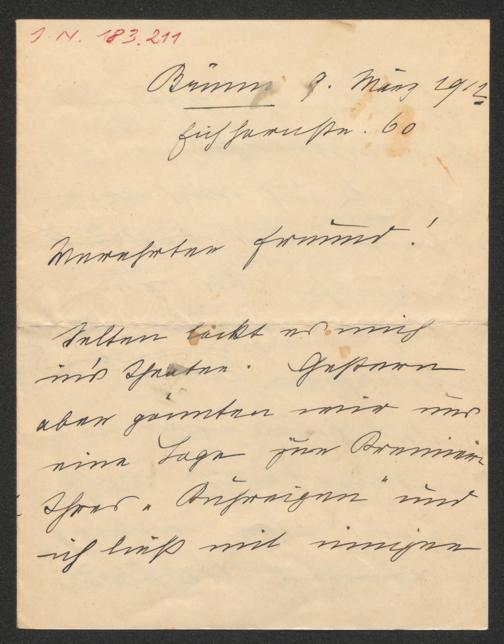 I. N. 183.211
Brünn 9. März 1912
Eichhornstr. 60
Verehrter Freund!
Selten lockt es mich
in's Theater. Gestern
aber gönnten wir uns
eine Loge zur Premiere
Ihres „Kuhreigen" und
ich ließ mit innigem